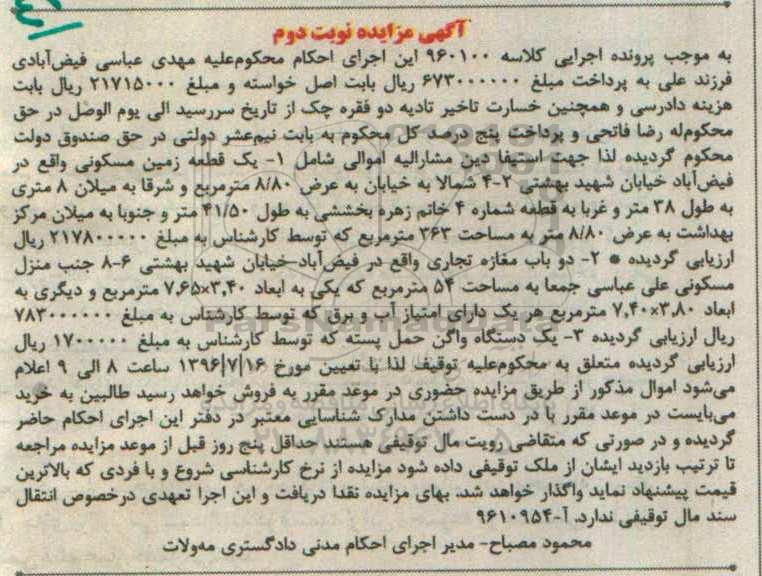 آگهی مزایده نوبت دوم
به موجب پرونده اجرایی کلاسه ۹۶۰۱۰۰ این اجرای احکام محکوم‌علیه مهدی عباسی فیض‌آبادی
فرزند علی به پرداخت مبلغ ۶۷۳۰۰۰۰۰۰ ریال بابت اصل خواسته و مبلغ ۲۱۷۱۵۰۰۰ ریال بابت
هزینه دادرسی و همچنین خسارت تاخیر تادیه دو فقره چک از تاریخ سررسید الی یوم الوصل در حق
محکوم‌له رضا فاتحی و پرداخت پنج درصد کل محکوم به بابت نیم‌عشر دولتی در حق صندوق دولت
محکوم گردیده لذا جهت استیفا دین مشارالیه اموالی شامل ۱- یک قطعه زمین مسکونی واقع در
فیض‌آباد خیابان شهید بهشتی ۲-۴ شمالا به خیابان به عرض ۸/۸۰ مترمربع و شرقا به میلان ۸ متری
به طول ۳۸ متر و غربا به قطعه شماره ۴ خانم زهره بخششی به طول ۴۱/۵۰ متر و جنوبا به میلان مرکز
بهداشت به عرض ۸/۸۰ متر به مساحت ۳۶۳ مترمربع که توسط کارشناس به مبلغ ۲۱۷۸۰۰۰۰۰ ریال
ارزیابی گردیده * ۲- دو باب مغازه تجاری واقع در فیض‌آباد-خیابان شهید بهشتی ۶-۸ جنب منزل
مسکونی علی عباسی جمعا به مساحت ۵۴ مترمربع که یکی به ابعاد ۳,۴۰×۷,۶۵ مترمربع و دیگری به
ابعاد ۳,۸۰×۷,۴۰ مترمربع هر یک دارای امتیاز آب و برق که توسط کارشناس به مبلغ ۷۸۳۰۰۰۰۰۰
ریال ارزیابی گردیده ۳- یک دستگاه واگن حمل پسته که توسط کارشناس به مبلغ ۱۷۰۰۰۰۰ ریال
ارزیابی گردیده متعلق به محکوم‌علیه توقیف لذا با تعیین مورخ ۱۳۹۶|۷|۱۶ ساعت ۸ الی ۹ اعلام
می‌شود اموال مذکور از طریق مزایده حضوری در موعد مقرر به فروش خواهد رسید طالبین به خرید
می‌بایست در موعد مقرر با در دست داشتن مدارک شناسایی معتبر در دفتر این اجرای احکام حاضر
گردیده و در صورتی که متقاضی رویت مال توقیفی هستند حداقل پنج روز قبل از موعد مزایده مراجعه
تا ترتیب بازدید ایشان از ملک توقیفی داده شود مزایده از نرخ کارشناسی شروع و با فردی که بالاترین
قیمت پیشنهاد نماید واگذار خواهد شد. بهای مزایده نقدا دریافت و این اجرا تعهدی درخصوص انتقال
سند مال توقیفی ندارد. آ-۹۶۱۰۹۵۴
محمود مصباح- مدیر اجرای احکام مدنی دادگستری مه‌ولات
ParsNamadData